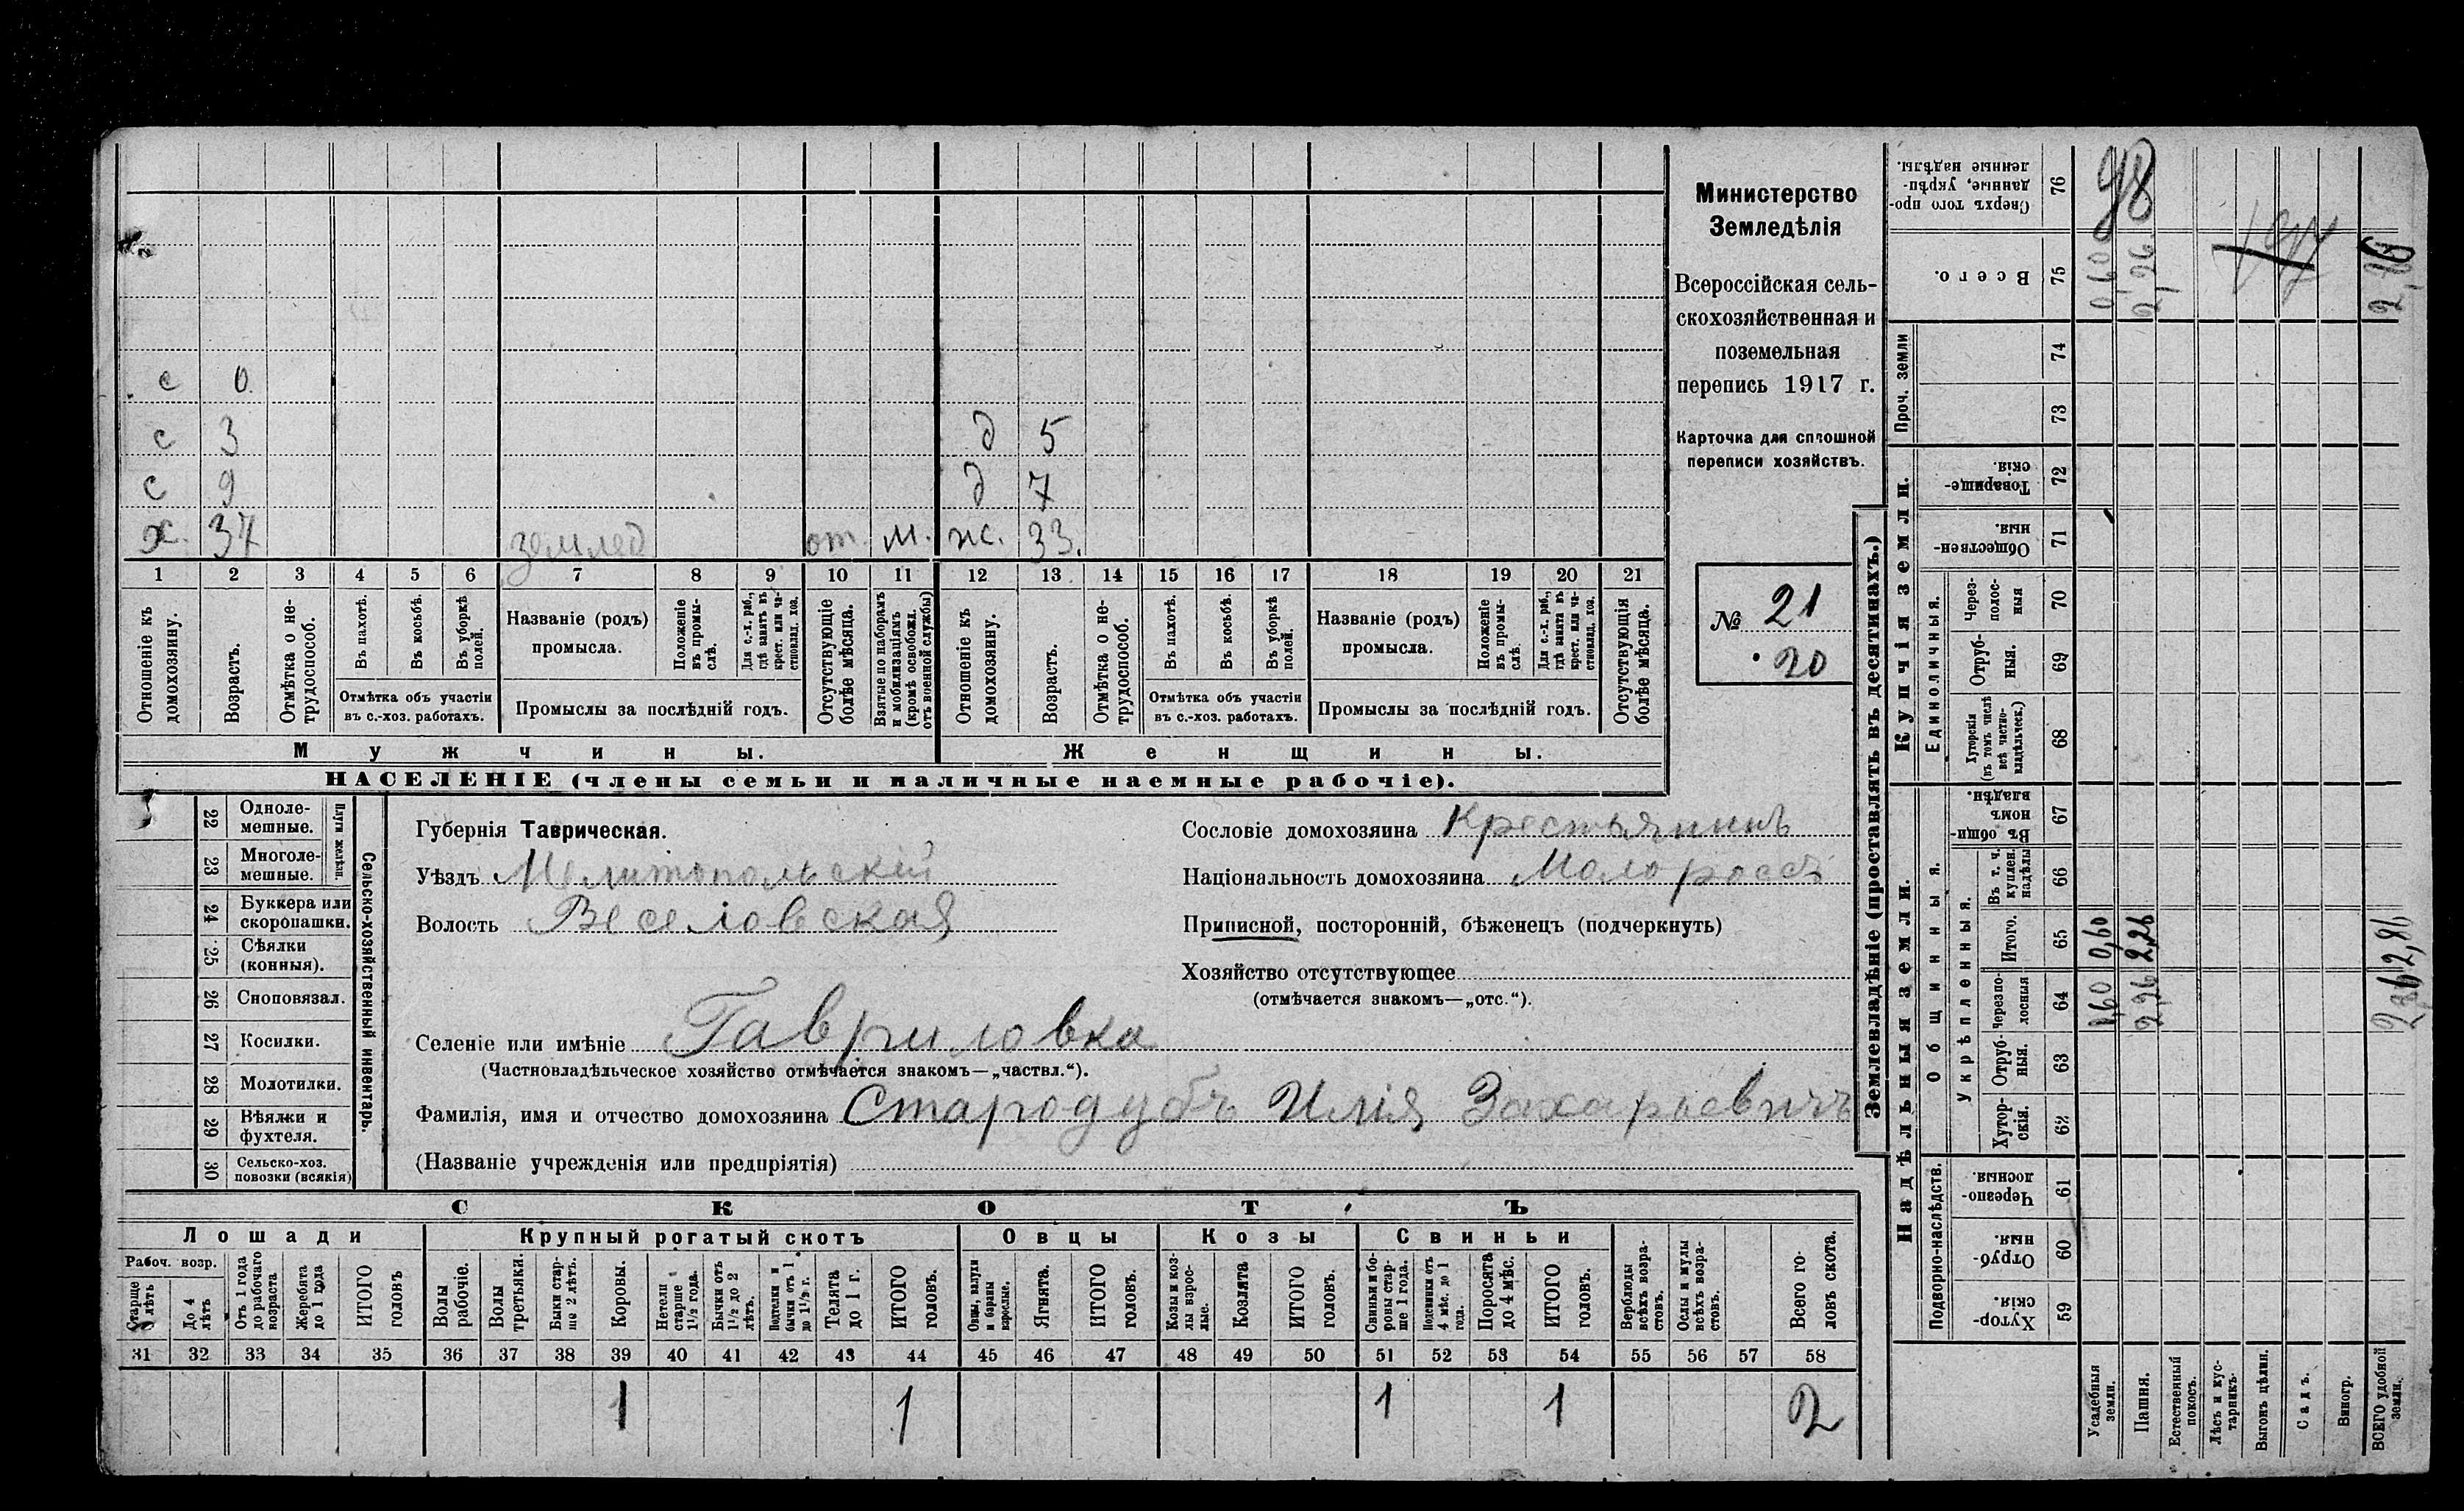 с 0.
с 3 д 5
с 9 д 7
х. 37 землед от. м. ж. 33.
1 2 3 4 5 6 7 8 9 10 11 12 13 14 15 16 17 18 19 20 21
Отношеніе къ домохозяину.
Возрастъ.
Отмѣтка о не-
трудоспособ.
Въ пахотѣ.
Въ косьбѣ.
Въ уборкѣ
полей.
Отмѣтка объ участіи
въ с.-хоз. работахъ.
Названіе (родъ)
промысла.
Положеніе
въ промы-
слѣ.
Для с.-х. раб.,
гдѣ занятъ въ
крест. или ча-
стновлад. хоз.
Промыслы за послѣдній годъ.
Отсутствующіе
болѣе мѣсяца.
Взятые по наборамъ
и мобилизаціямъ
(кромѣ освобожд.
отъ военной службы)
Отношеніе къ
домохозяину.
Возрастъ.
Отмѣтка о не-
трудоспособ.
Въ пахотѣ.
Въ косьбѣ.
Въ уборкѣ
полей.
Отмѣтка объ участіи
въ с.-хоз. работахъ.
Названіе (родъ)
промысла.
Положеніе
въ промы-
слѣ.
Для с.-х. раб.,
гдѣ занята въ
крест. или ча-
стновлад. хоз.
Промыслы за послѣдній годъ.
Отсутствующія
болѣе мѣсяца.
Мужчины.
Женщины.
НАСЕЛЕНІЕ (члены семьи и наличные наемные рабочіе).
Министерство
Земледѣлія
Всероссійская сель-
скохозяйственная и
поземельная
перепись 1917 г.
Карточка для сплошной
переписи хозяйствъ.
№ 21
20
Сельско-хозяйственный инвентарь.
Плуги желѣзн.
22 Одноле-
мешные.
23 Многоле-
мешные.
24 Буккера или
скоропашки.
25 Сѣялки
(конныя).
26 Сноповязал.
27 Косилки.
28 Молотилки.
29 Вѣялки и
фухтеля.
30 Сельско-хоз.
повозки (всякія)
Губернія Таврическая.
Уѣздъ Мелитопольскій
Волость Веселовская
Сословіе домохозяина Крестьянинъ
Національность домохозяина Малороссъ
Приписной, посторонній, бѣженецъ (подчеркнуть)
Хозяйство отсутствующее
(отмѣчается знакомъ—„отс.“).
Селеніе или имѣніе Гавриловка
(Частновладѣльческое хозяйство отмѣчается знакомъ—„частвл.“).
Фамилія, имя и отчество домохозяина Стародубъ Илія Захарьевичъ
(Названіе учрежденія или предпріятія)
СКОТЪ
Лошади Крупный рогатый скотъ Овцы Козы Свиньи
Рабоч. возр.
Старше
4 лѣтъ
До 4
лѣтъ
Отъ 1 года
до рабочаго
возраста
Жеребята
до 1 года
ИТОГО
головъ
Волы
рабочіе.
Волы
третьяки.
Быки стар-
ше 2 лѣтъ.
Коровы.
Нетели
старше
1½ года.
Бычки отъ
1½ до 2
лѣтъ.
Подтелки и
бычки отъ 1
до 1½ г.
Телята
до 1 г.
ИТОГО
головъ.
Овцы, валухи
и бараны
взрослые.
Ягнята.
ИТОГО
головъ.
Козы и коз-
лы взрос-
лые.
Козлята
ИТОГО
головъ.
Свиньи и бо-
ровы стар-
ше 1 года.
Подсвинки отъ
4 мѣс. до 1
года.
Поросята
до 4 мѣс.
ИТОГО
головъ.
Верблюды
всѣхъ возра-
стовъ.
Ослы и мулы
всѣхъ возра-
стовъ.
Всего го-
ловъ скота.
31 32 33 34 35 36 37 38 39 40 41 42 43 44 45 46 47 48 49 50 51 52 53 54 55 56 57 58
1 1 1 1 2
Землевладѣніе (проставлять въ десятинахъ.)
Надѣльныя земли.
Купчія земли.
Проч. земли
Подворно-наслѣдств.
Общинныя.
Укрѣпленныя.
Единоличныя.
Сверхъ того про-
данные, укрѣп-
ленные надѣлы.
76
98
Всего.
75 0,60 2,26 2,86
74
73
Товарище-
скія.
72
Обществен-
ныя.
71
Через-
полос-
ныя
70
Отруб-
ныя.
69
Хуторскія
(въ томъ числѣ
всѣ частно-
владѣльческ.)
68
Въ общин-
номъ
владѣн.
67
Въ т. ч.
куплен.
надѣлы
66
Итого.
65 0,60 2,26 2,86
Черезпо-
лосныя
64 0,60 2,26 2,86
Отруб-
ныя.
63
Хутор-
скія.
62
Черезпо-
лосныя.
61
Отруб-
ныя.
60
Хутор-
скія.
59
Усадебныя
земли.
Пашня.
Естественный
покосъ.
Лѣсъ и кус-
тарникъ.
Выгонъ цѣлин.
Садъ.
Виногр.
ВСЕГО удобной
земли.